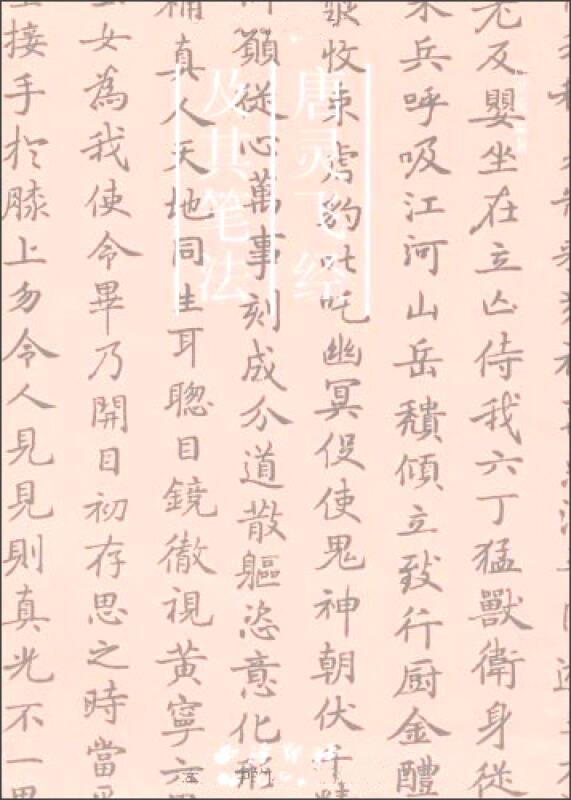 唐灵飞经
及其笔法
老及嬰坐在立亾侍我六丁猛獸衛身從
兵呼吸江河山岳穨傾立致行厨金醴
收束虎豹叱咤幽冥促使鬼神朝伏千精
願從心萬事刻成分道散軀恣意化形
補真人天地同生耳聰目鏡徹視黃寧六
女為我使令畢乃開目初存思之時當
接手於膝上勿令人見見則真光不一